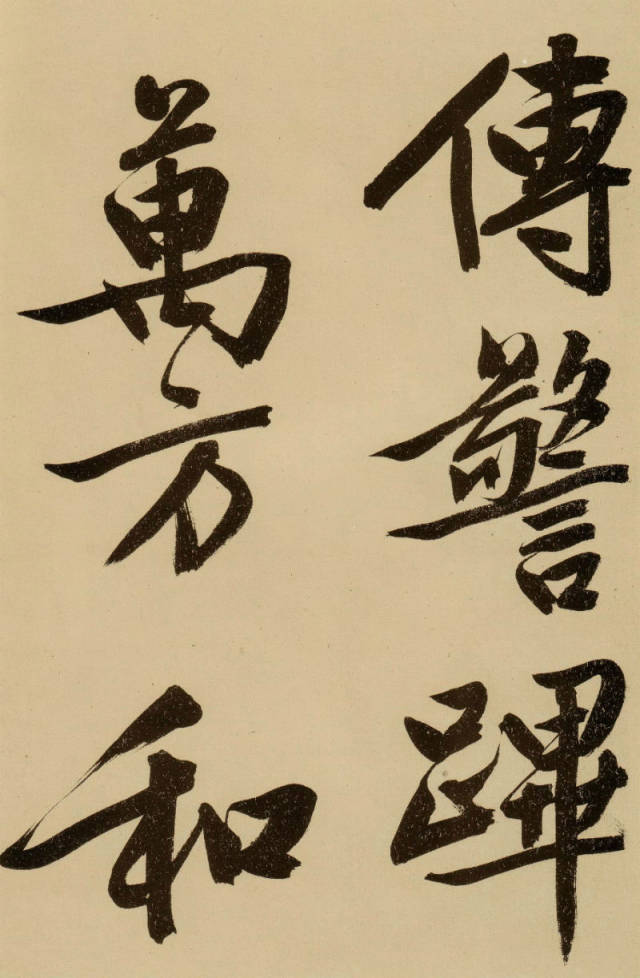 傳警蹕
萬方和